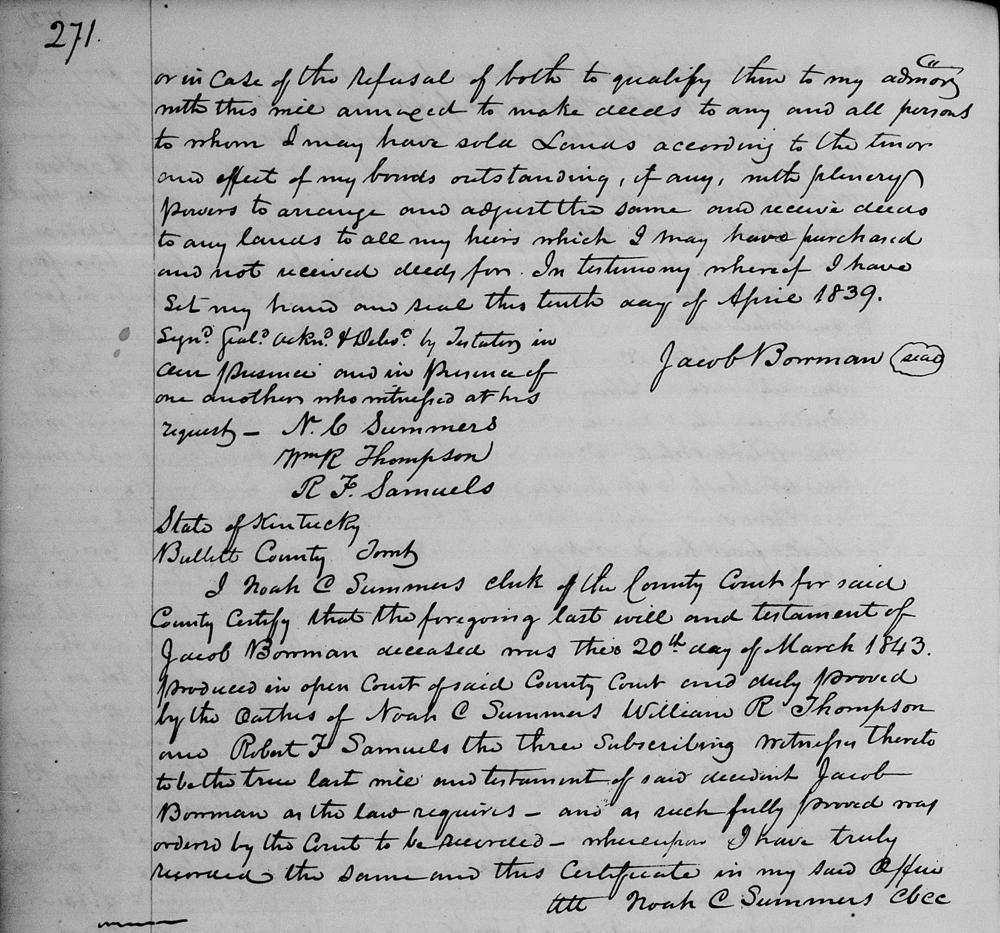 271.
or in case of the refusal of both to qualify then to my admors
with this will annexed to make deeds to any and all persons
to whom I may have sold Lands according to the tenor
and effect of my bonds outstanding, if any, with plenery
powers to arrange and adjust the same and receive deeds
to any lands to all my heirs which I may have purchased
and not received deeds for. In testimony whereof I have
set my hand and seal this tenth day of April 1839.
Signd. Seald. acknd. & Delivd. by Testator in
our presence and in presence of
Jacob Bowman (seal)
one another who witnessed at his
request — N. C Summers
Wm R Thompson
R F. Samuels
State of Kentucky
Bullitt County Towit
I Noah C Summers clerk of the County Court for said
County Certify that the foregoing last will and testament of
Jacob Bowman deceased was this 20th day of March 1843.
produced in open Court of said County Court and duly proved
by the Oathes of Noah C Summers William R Thompson
and Robert F Samuels the three Subscribing Witnesses thereto
to be the true last will and testament of said decedent Jacob
Bowman as the law requires — and as such fully proved was
ordered by the Court to be recorded — whereupon I have truly
recorded the same and this Certificate in my said Office
Att Noah C Summers CBCC